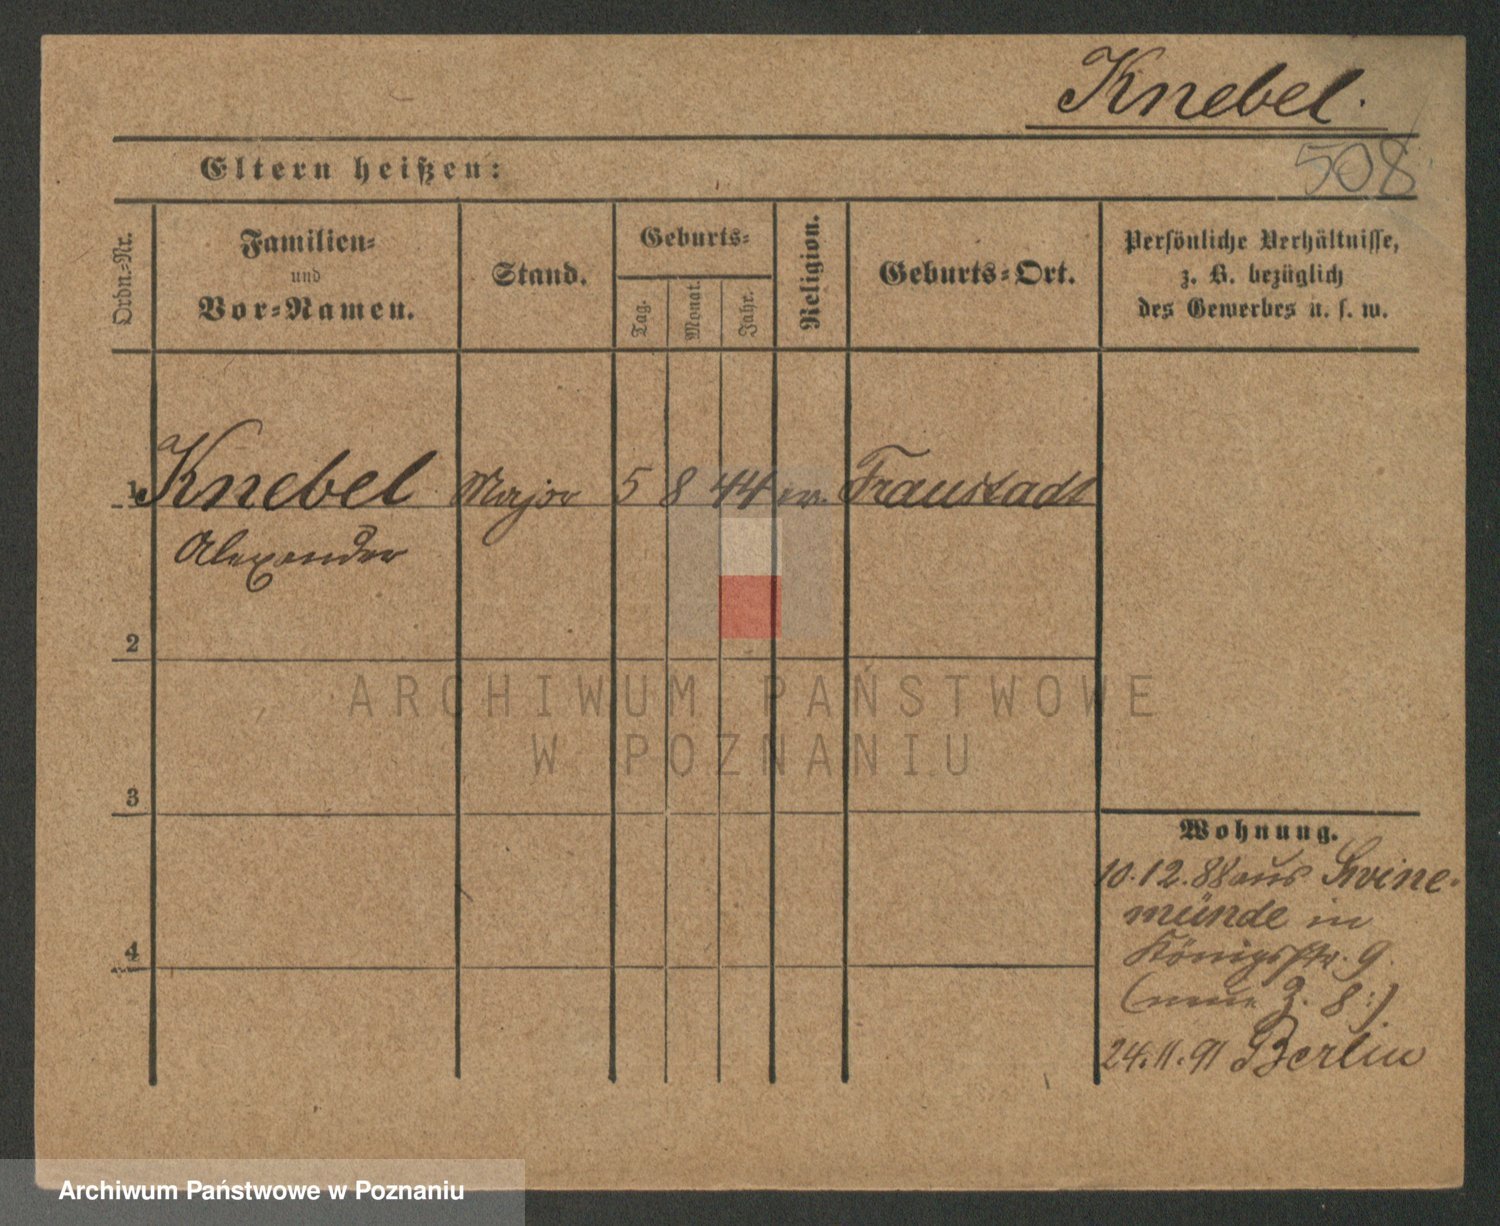 Knebel.
508
Eltern heißen:
Ordn.-Nr.
Familien-
und
Vor-Namen.
Stand.
Geburts-
Tag.
Monat.
Jahr.
Religion.
Geburts-Ort.
Persönliche Verhältnisse,
z. B. bezüglich
des Gewerbes u. s. w.
1 Knebel Major 5 8 44 ev. Fraustadt
Alexander
2
3
4
Wohnung.
10.12.88 aus Swine-
münde in
Königsstr. 9.
8:)
24.11.91 Berlin
ARCHIWUM PAŃSTWOWE
W POZNANIU
Archiwum Państwowe w Poznaniu